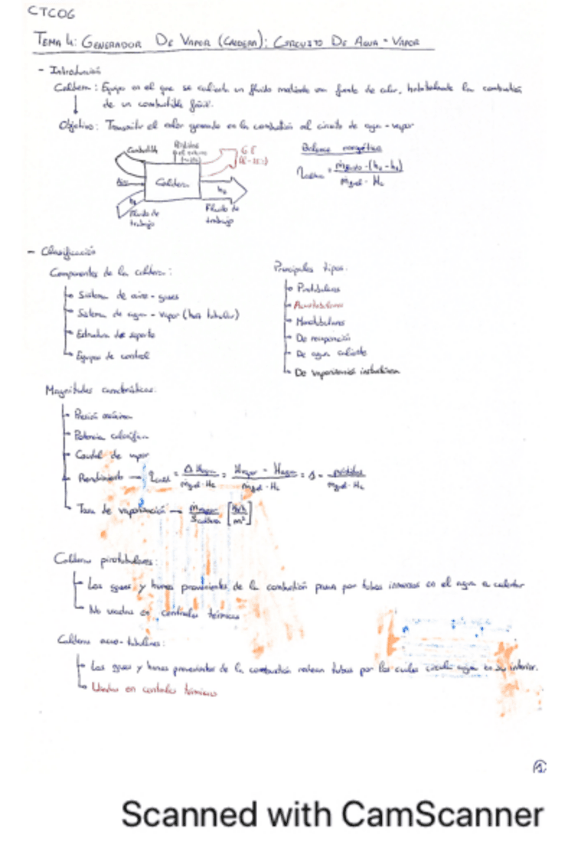 CTC06
TEMA 4: GENERADOR DE VAPOR (CALDERA): CIRCUITO DE AGUA - VAPOR
- Introducción
Caldera: Equipo en el que se calienta un fluido mediante una fuente de calor, habitualmente la combustión
de un combustible fósil.
Objetivo: Transmitir el calor generado en la combustión al circuito de agua-vapor
Combustible
G.E
Balance energético
Aire
Caldera
Fluido de
trabajo
Fluido de
trabajo
- Clasificación
Componentes de la caldera:
Sistema de aire-gases
Sistema de agua-vapor (haz tubular)
Estructura de soporte
Equipos de control
Principales tipos:
Pirotubulares
Acuotubulares
De recuperación
De agua caliente
De vaporización instantánea
Magnitudes características:
Presión máxima
Potencia calorífica
Caudal de vapor
Rendimiento →
Tasa de vaporización →
Calderas pirotubulares:
Los gases y humos provenientes de la combustión pasan por tubos inmersos en el agua a calentar
No usadas en centrales térmicas
Calderas acuo-tubulares:
Los gases y humos provenientes de la combustión rodean tubos por los cuales circula agua en su interior.
Usadas en centrales térmicas
1
Scanned with CamScanner